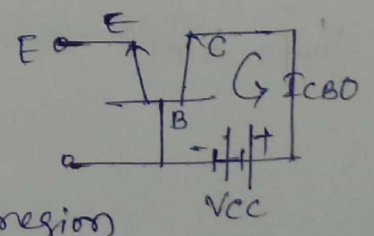 E
E
C
ICBO
B
- +
VCC
region